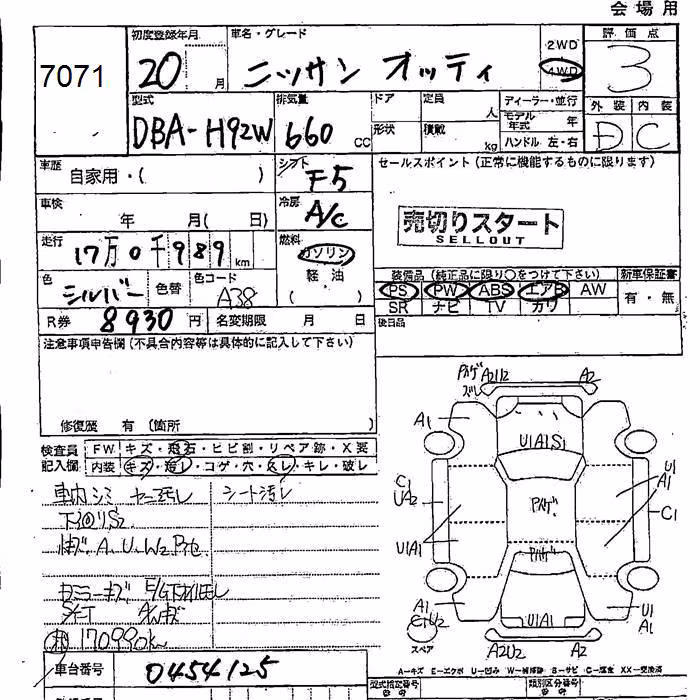 会場用
7071
初度登録年月
20 月
車名・グレード
ニッサン オッティ
2WD
4WD
評価点
3
型式
DBA-H92W
排気量
660 CC
ドア
定員 人
形状
積載 kg
ディーラー・並行
モデル年式 年
ハンドル 左・右
外装 内装
D C
車歴
自家用・( )
シフト
F5
セールスポイント(正常に機能するものに限ります)
車検
年 月( 日)
冷房
A/C
売切りスタート
SELLOUT
走行
17万0千989km
燃料
ガソリン
軽油
( )
色
シルバー
色替
色コード
A38
装備品(純正品に限り○をつけて下さい)
新車保証書
PS PW ABS エアB AW
有・無
SR ナビ TV カワ
R券 8930円
名変期限 月 日
後日品
注意事項申告欄(不具合内容等は具体的に記入して下さい)
修復歴 有(箇所 )
検査員記入欄
FW キズ・飛石・ヒビ割・リペア跡・X要
内装 キズ・汚レ・コゲ・穴・灰レ・キレ・破レ
車内シミ 汚レ シート汚レ
下廻りS2
キズ、A、U、W2
ミラーキズ E/Gオイルモレ
170990km
車台番号
0454125
A2U2 A2
A1
U1A1S1
U1
A1
C1
UA2
C1
U1A1
A1
U2
U1A1
U1
A1
スペア
A2U2 A2
A-キズ E-エクボ U-凹み W-補修跡 S-サビ C-腐食 XX-交換済
型式指定番号
類別区分番号